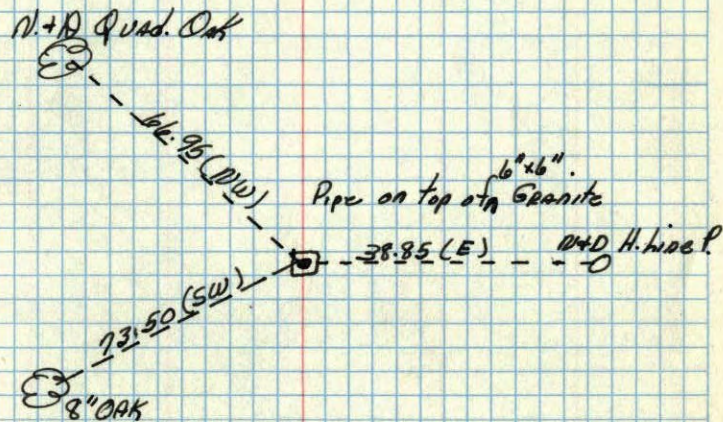 N.+D Quad. Oak
66.95 (NW)
6"x6"
Pipe on top of Granite
38.85 (E)
N+D H. Line P.
73.50 (SW)
8" OAK